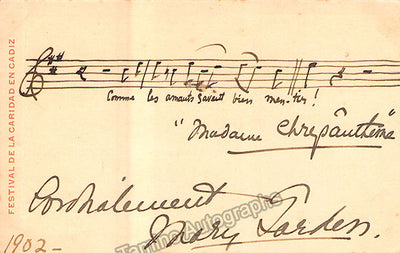 FESTIVAL DE LA CARIDAD EN CADIZ
Comme les amants savent bien men-tir!
"Madame Chrysanthème"
Cordialement
Mary Garden.
Tamino Autographs
1902-